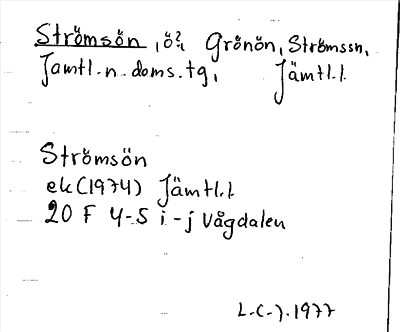 Strömsön, ö?, Grönön, Strömssn,
Jämtl. n. doms. tg, Jämtl.l.
Strömsön
ek (1974) Jämtl.l
20 F 4-5 i-j Vågdalen
L.C.J. 1977